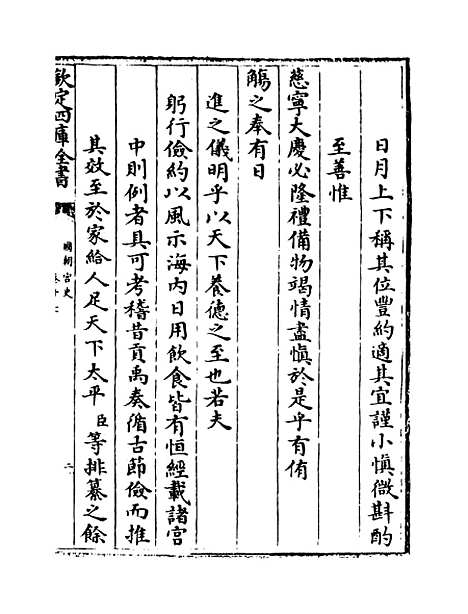 日月上下稱其位豐約適其宜謹小慎微斟酌
至善惟
慈寧大慶必隆禮備物竭情盡慎於是乎有侑
觴之奉有日
進之儀明乎以天下養德之至也若夫
躬行儉約以風示海内日用飲食皆有恒經載諸宫
中則例者具可考稽昔貢禹奏循古節儉而推
其效至於家給人足天下太平臣等排纂之餘
欽定四庫全書
國朝宫史
二